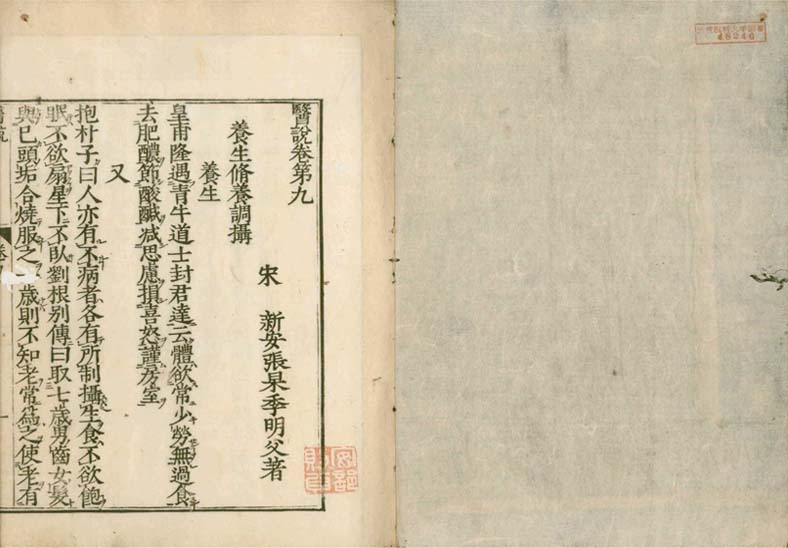 醫說卷第九
宋 新安張杲季明父著
養生脩養調攝
養生
皇甫隆遇青牛道士封君達云體欲常少勞無過食
去肥醲節酸鹹減思慮損喜怒謹房室
又
抱朴子曰人亦有不病者各有所制攝生食不欲飽
眠不欲扇星下不臥劉根別傳曰取七歲男齒女髮
與己頭垢合燒服之一歲則不知老常爲之使老有
醫說
48246